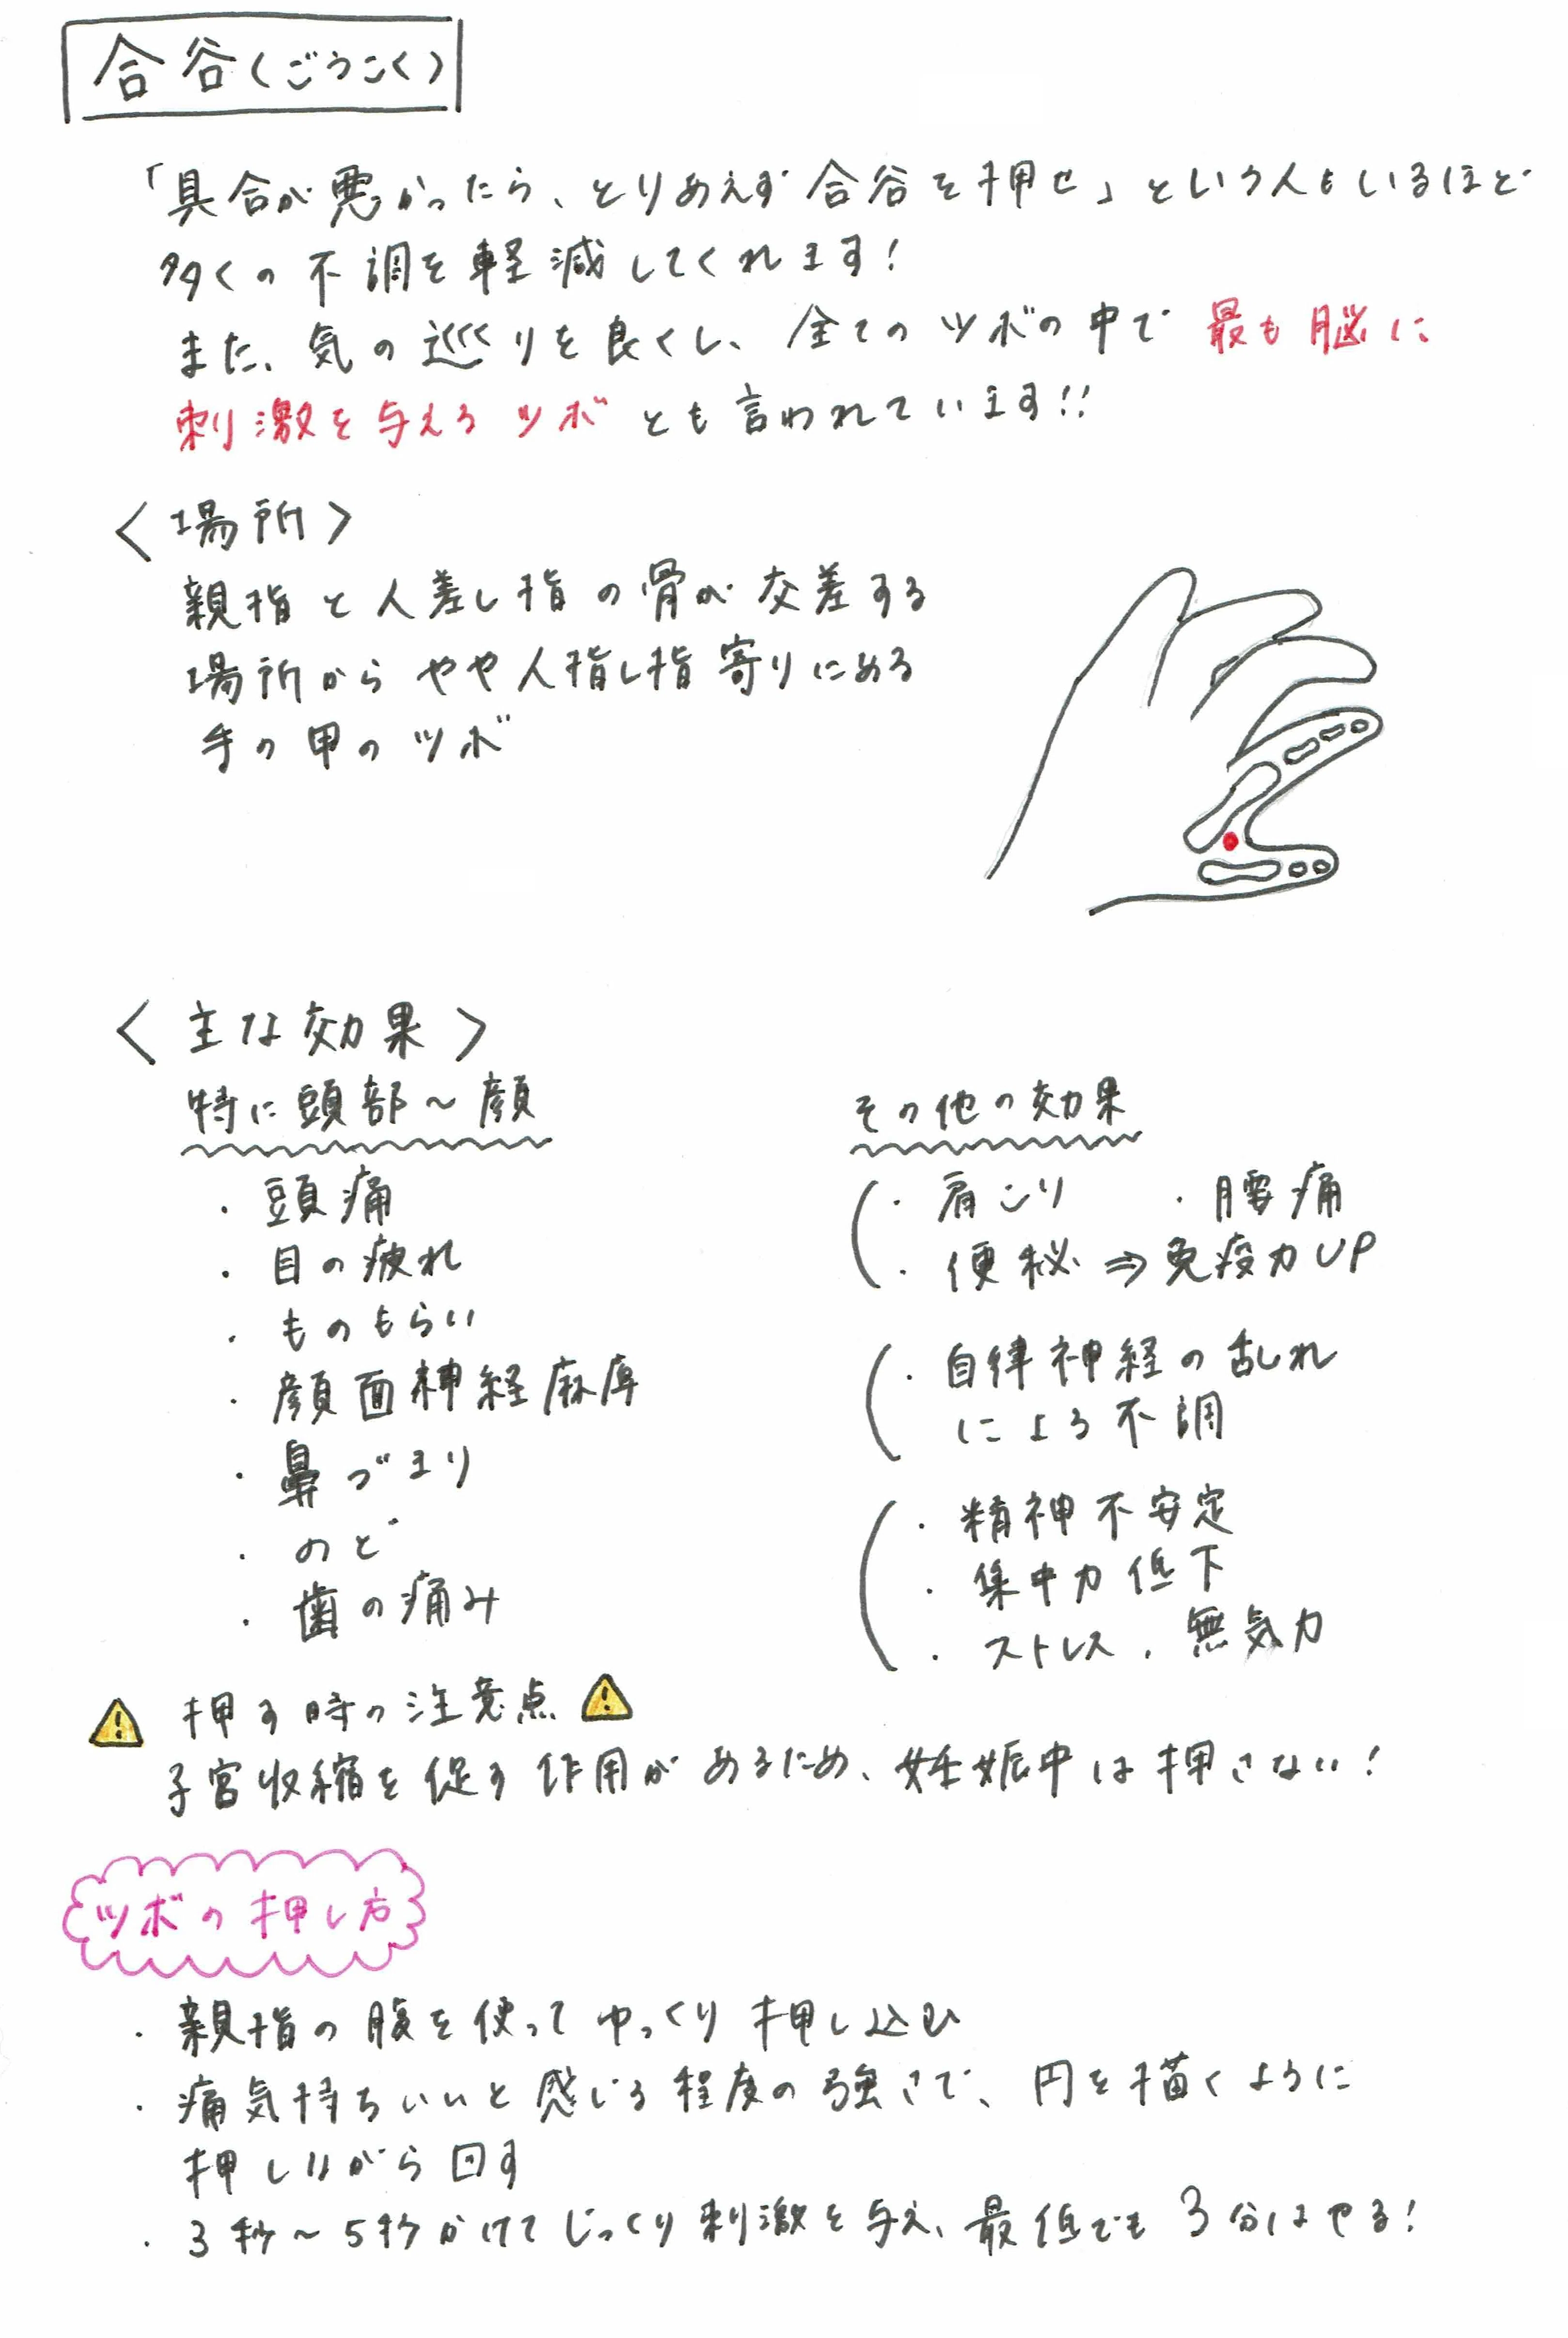 合谷(ごうこく)
「具合が悪かったら、とりあえず合谷を押せ」という人もいるほど
多くの不調を軽減してくれます!
また、気の巡りを良くし、全てのツボの中で最も脳に
刺激を与えるツボとも言われています!!
<場所>
親指と人差し指の骨が交差する
場所からやや人指し指寄りにある
手の甲のツボ
<主な効果>
特に頭部~顔
・頭痛
・目の疲れ
・ものもらい
・顔面神経麻痺
・鼻づまり
・のど
・歯の痛み
その他の効果
・肩こり ・腰痛
・便秘⇒免疫力UP
・自律神経の乱れ
による不調
・精神不安定
・集中力低下
・ストレス・無気力
⚠ 押す時の注意点 ⚠
子宮収縮を促す作用があるため、妊娠中は押さない!
ツボの押し方
・親指の腹を使ってゆっくり押し込む
・痛気持ちいいと感じる程度の強さで、円を描くように
押しながら回す
・3秒~5秒かけてじっくり刺激を与え、最低でも3分はやる!